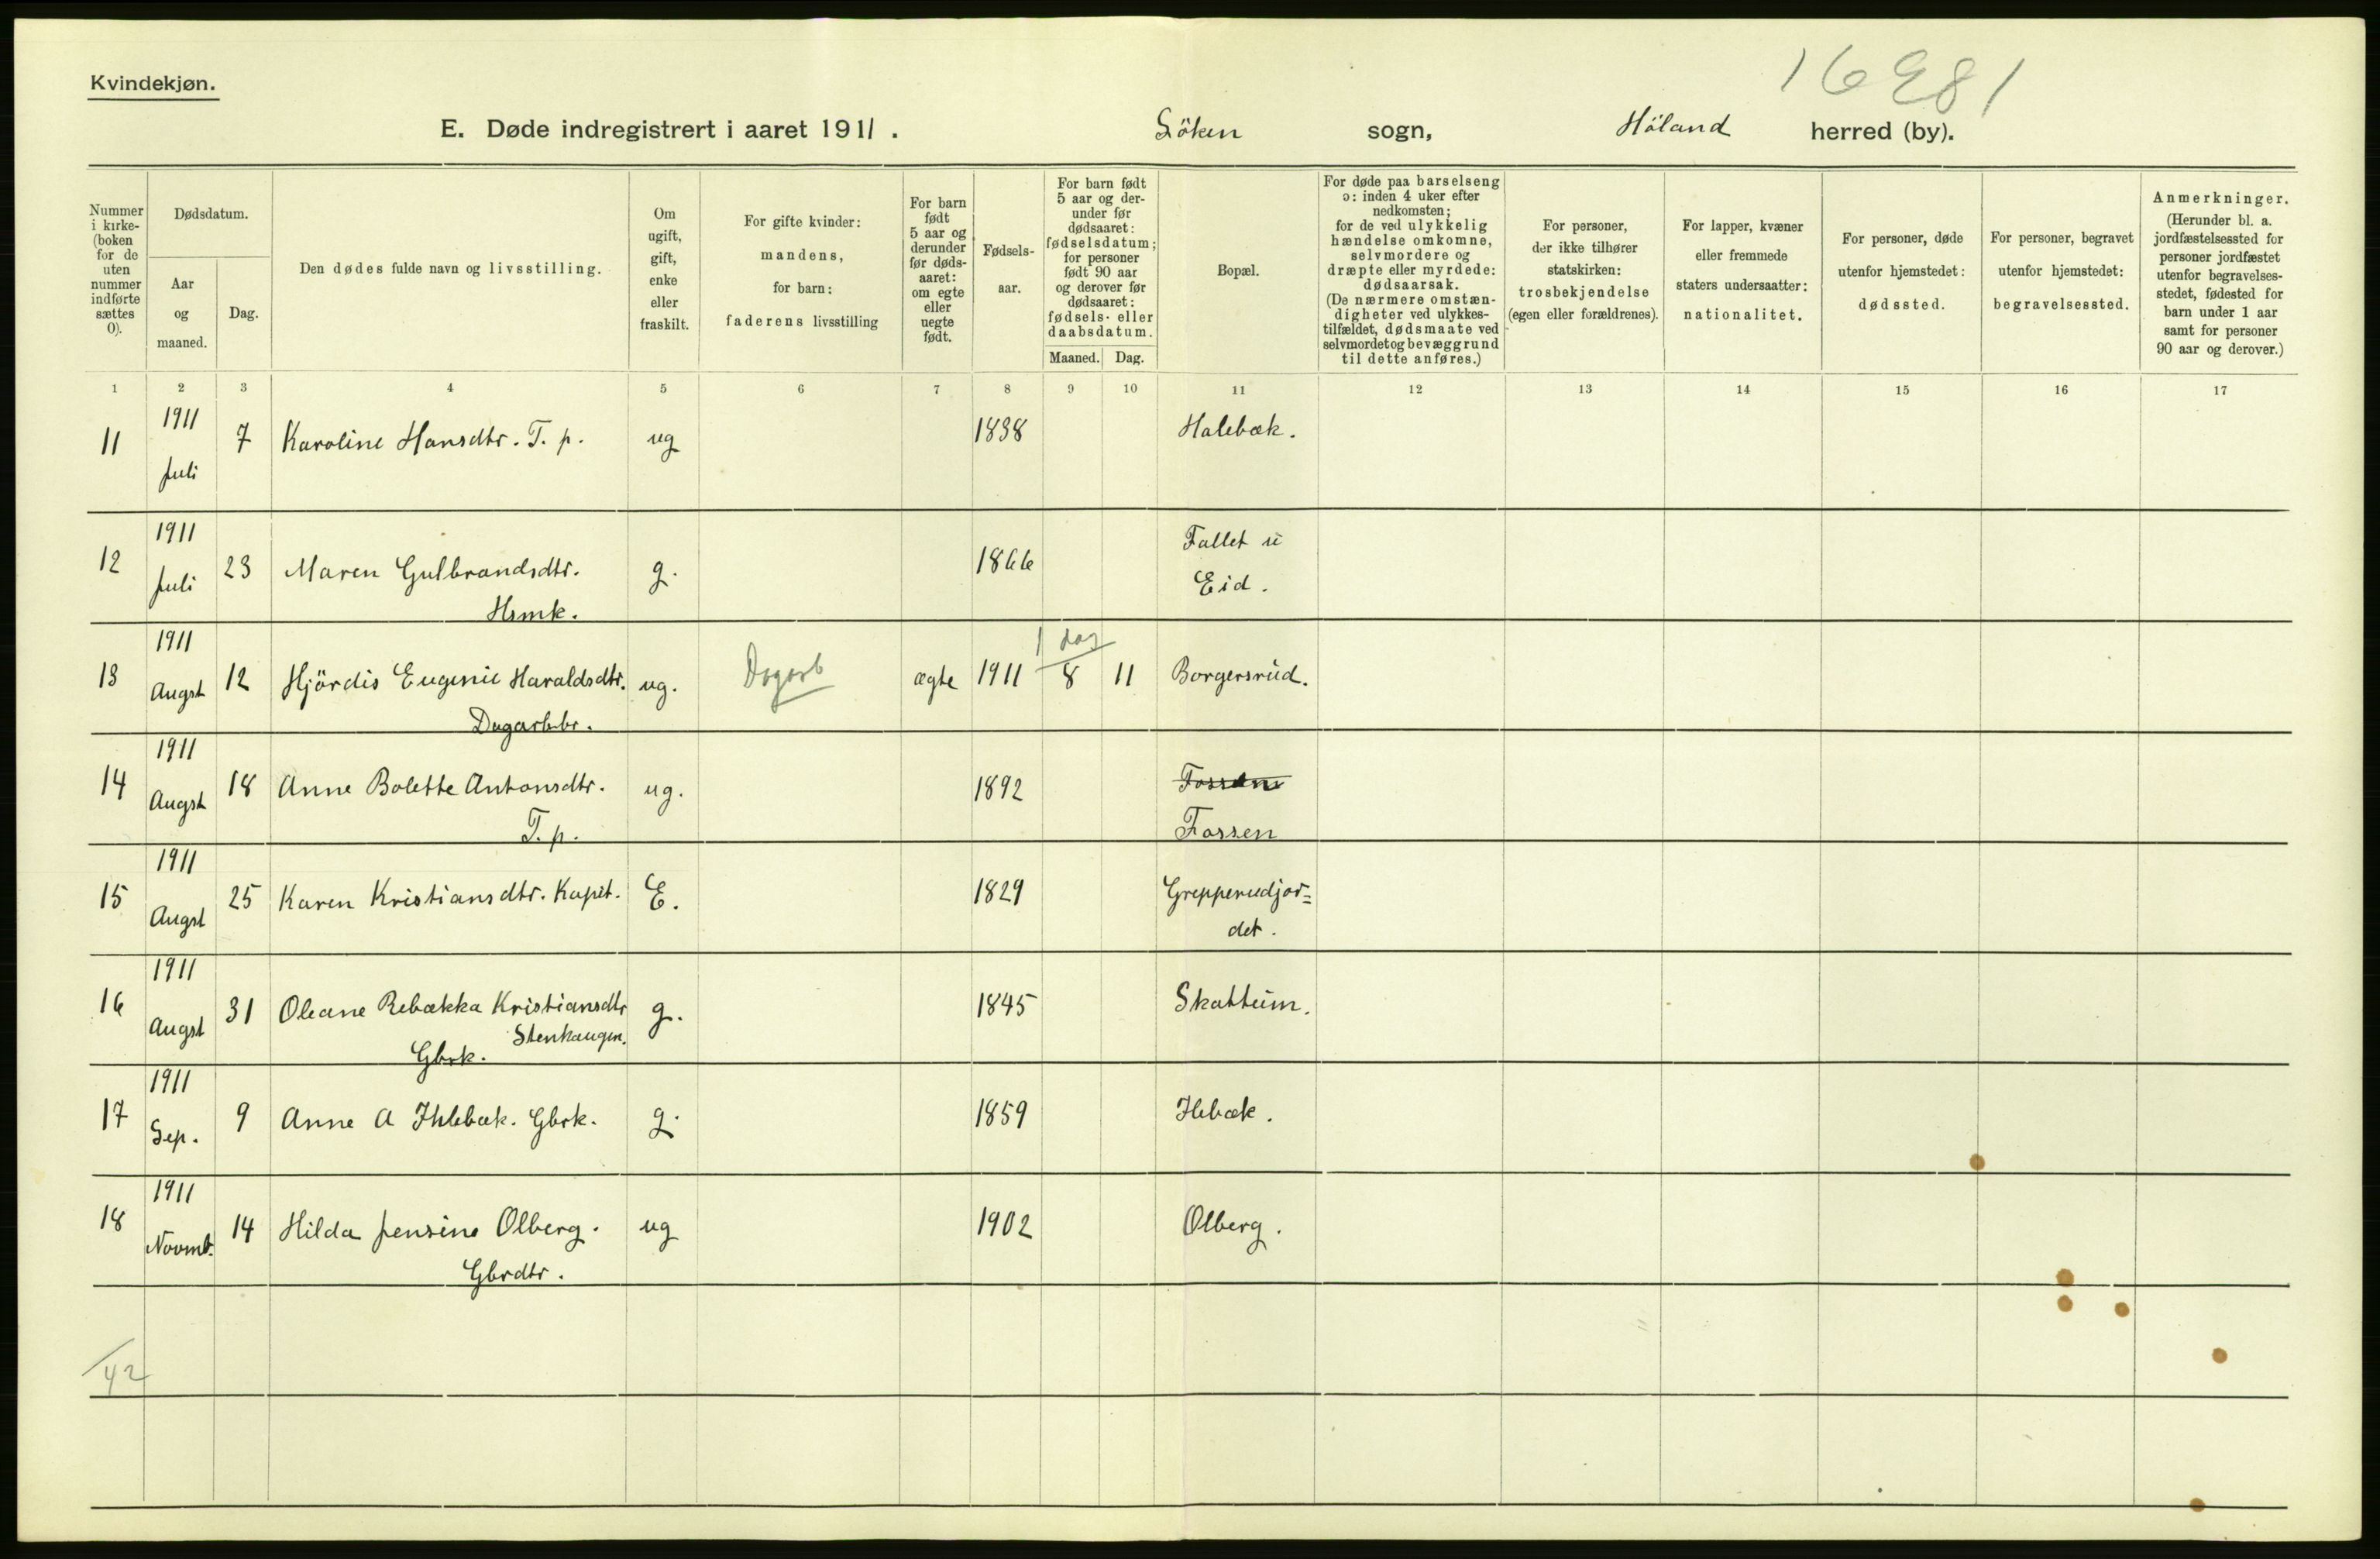 Kvindekjøn.
16981
E. Døde indregistrert i aaret 1911.
Löken sogn,
Höland herred (by).
Nummer i kirke-(boken for de uten nummer indførte sættes 0).
Dødsdatum.
Aar og maaned.
Dag.
Den dødes fulde navn og livsstilling.
Om ugift, gift, enke eller fraskilt.
For gifte kvinder: mandens, for barn: faderens livsstilling
For barn født 5 aar og derunder før døds-aaret: om egte eller uegte født.
Fødsels-aar.
For barn født 5 aar og der-under før dødsaaret: fødselsdatum; for personer født 90 aar og derover før dødsaaret: fødsels- eller daabsdatum.
Maaned. Dag.
Bopæl.
For døde paa barselseng ɔ: inden 4 uker efter nedkomsten; for de ved ulykkelig hændelse omkomne, selvmordere og dræpte eller myrdede: dødsaarsak. (De nærmere omstæn-digheter ved ulykkes-tilfældet, dødsmaate ved selvmordet og bevæggrund til dette anføres.)
For personer, der ikke tilhører statskirken: trosbekjendelse (egen eller forældrenes).
For lapper, kvæner eller fremmede staters undersaatter: nationalitet.
For personer, døde utenfor hjemstedet: dødssted.
For personer, begravet utenfor hjemstedet: begravelsessted.
Anmerkninger. (Herunder bl. a. jordfæstelsessted for personer jordfæstet utenfor begravelses-stedet, fødested for barn under 1 aar samt for personer 90 aar og derover.)
1 2 3 4 5 6 7 8 9 10 11 12 13 14 15 16 17
11 1911 Juli 7 Karoline Hansdtr. T. p. ug 1838 Halebæk.
12 1911 Juli 23 Maren Gulbrandsdtr. Hsmk. g. 1866 Fallet u Eid.
1 dag
13 1911 Augst 12 Hjördis Eugenie Haraldsdtr. Dagarbbr. ug. Dagarb ægte 1911 8 11 Borgersrud.
14 1911 Augst 18 Anne Bolette Antonsdtr. T. p. ug. 1892 Fossen
15 1911 Augst 25 Karen Kristiansdtr. Kapit. E. 1829 Grepperudjor=
det.
16 1911 Augst 31 Oleane Rebækka Kristiansdtr Stenhaugen. Gbrk. g. 1845 Skattum.
17 1911 Sep. 9 Anne A Ihlebæk. Gbrk. g. 1859 Ilebæk.
18 1911 Novmb. 14 Hilda Jensine Olberg. Gbrdtr. ug 1902 Olberg.
42